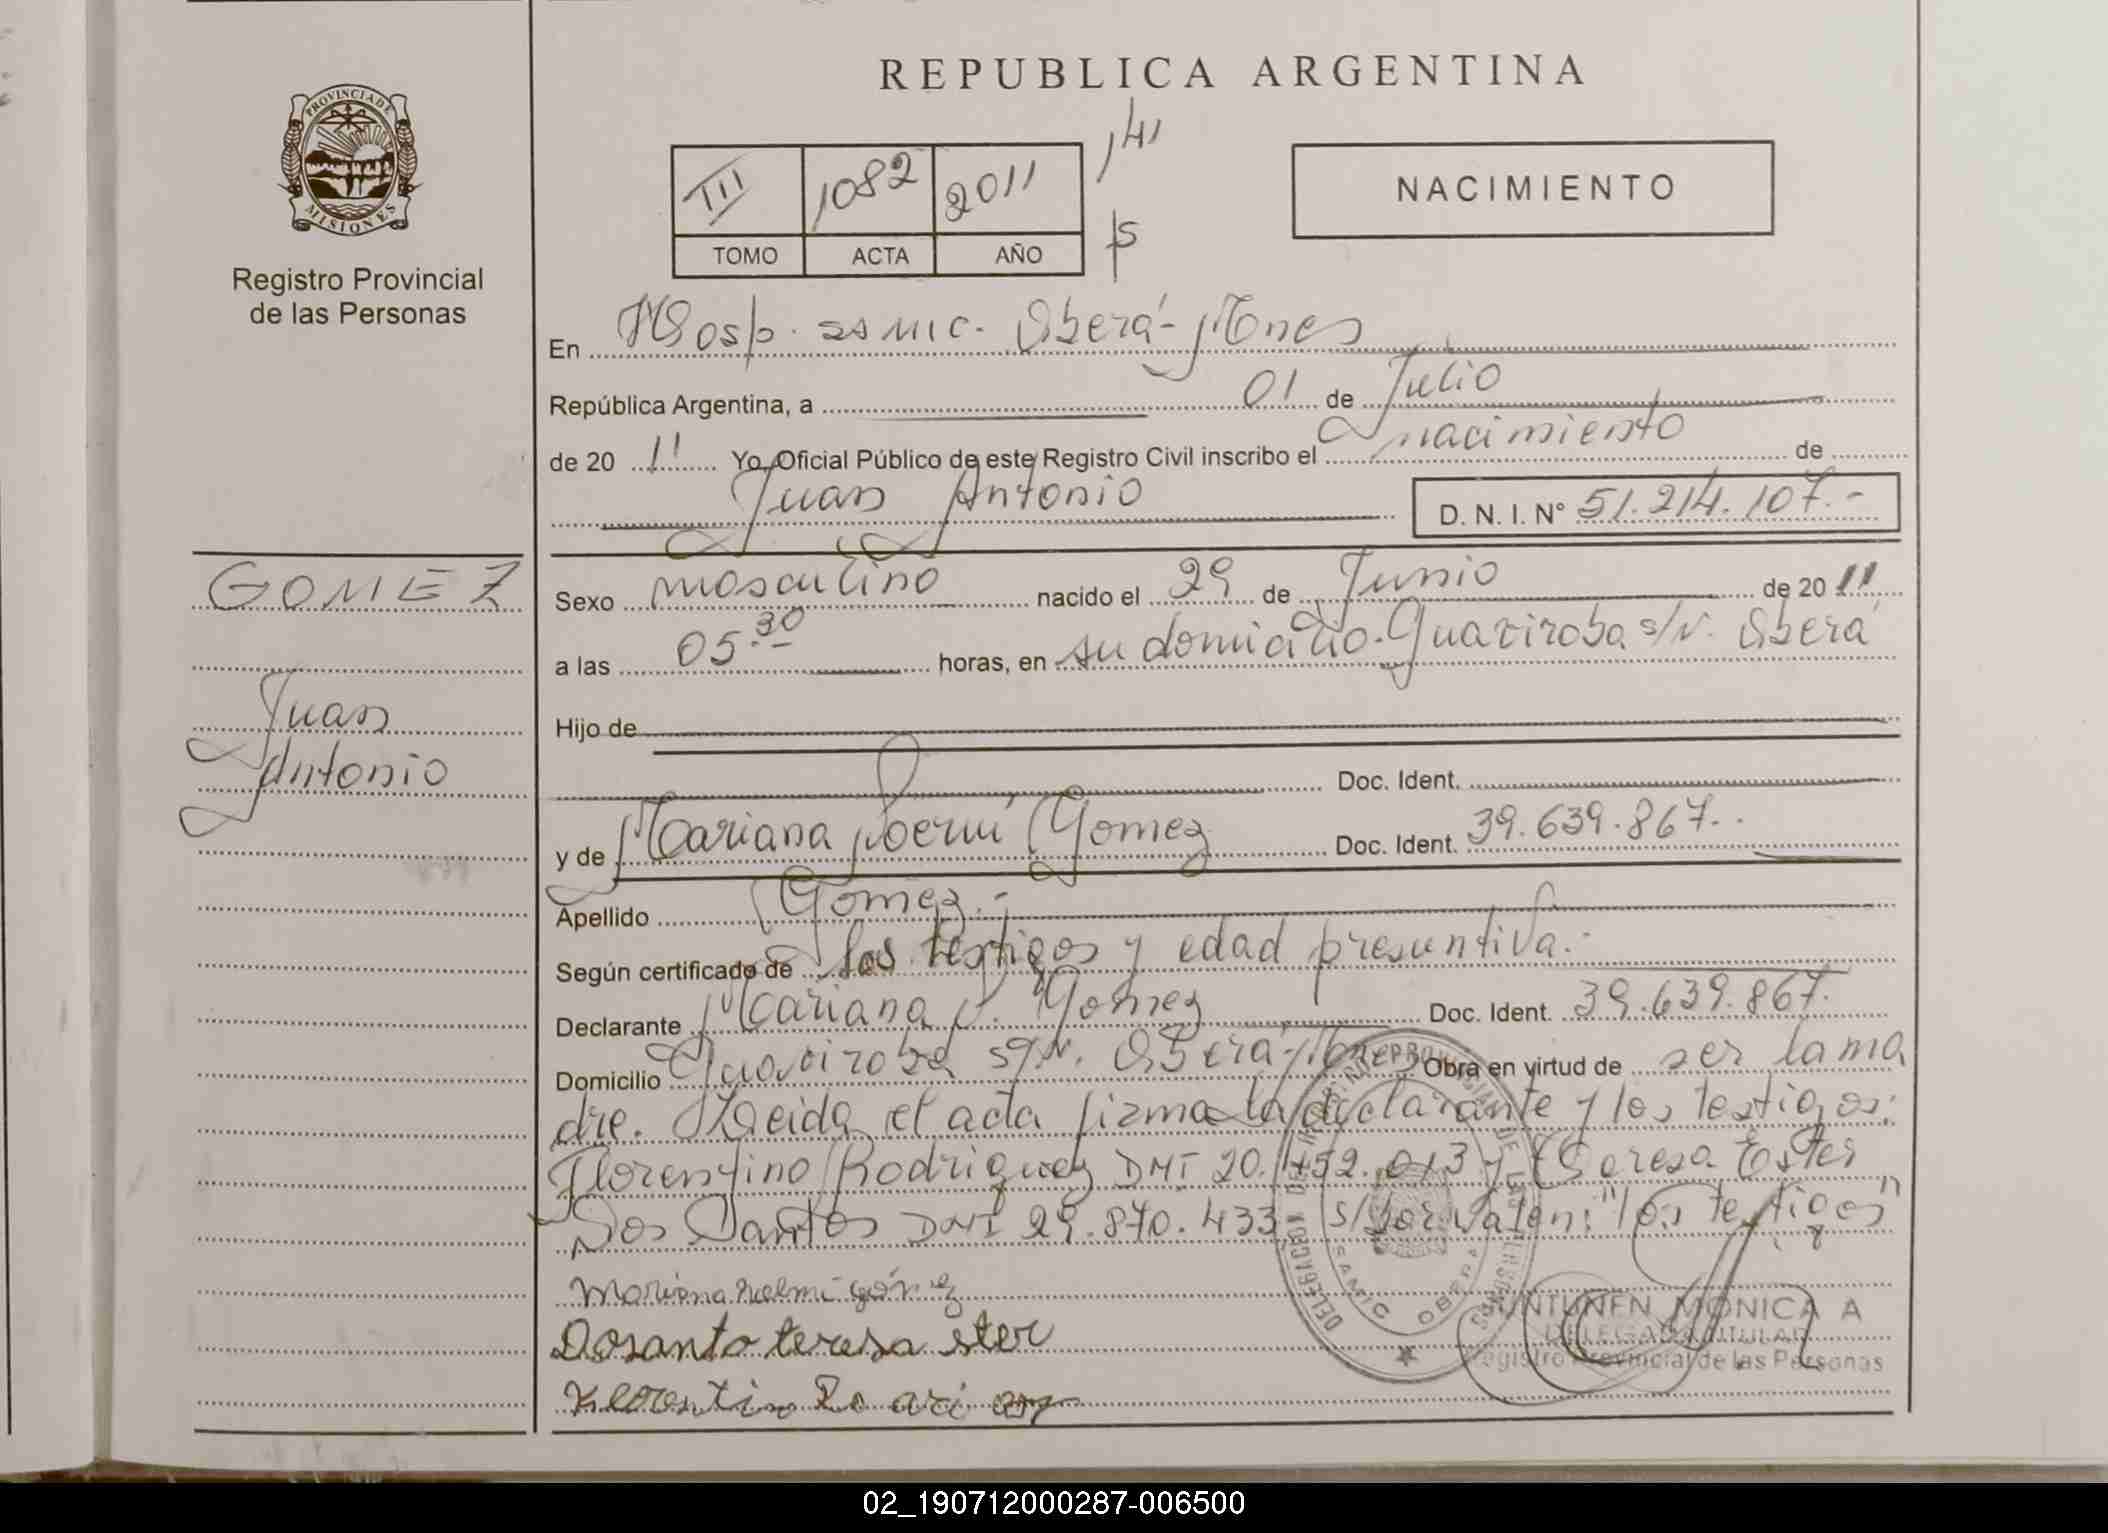 REPUBLICA ARGENTINA
PROVINCIA DE
MISIONES
Registro Provincial
de las Personas
III 1082 2011
TOMO ACTA AÑO
141
NACIMIENTO
En Hosp. SAMIC. Oberá - Mnes
República Argentina, a 01 de Julio
de 20 11 Yo, Oficial Público de este Registro Civil inscribo el nacimiento de
Juan Antonio D. N. I. N° 51.214.107.-
GOMEZ
Juan
Antonio
Sexo masculino nacido el 29 de Junio de 20 11
a las 05.30 horas, en su domicilio. Guaviroba s/N. Oberá
Hijo de
Doc. Ident.
y de Mariana Noemí Gomez Doc. Ident. 39.639.867..
Apellido Gomez.-
Según certificado de los testigos y edad presuntiva.-
Declarante Mariana N. Gomez Doc. Ident. 39.639.867.
Domicilio Guaviroba s/N. Oberá - Mnes Obra en virtud de ser la ma
dre. Leida el acta firma la declarante y los testigos:
Florentino Rodriguez DNI 20. y Teresa Ester
Dos Santos DNI 29.870.433, s/bor. valen: "los testigos"
Mariana noemi gómez
Dosanto teresa ster
Florentino
DELEGACION
SAMIC OBERA
MONICA A
DELEGADA TITULAR
Registro Provincial de las Personas
02_190712000287-006500